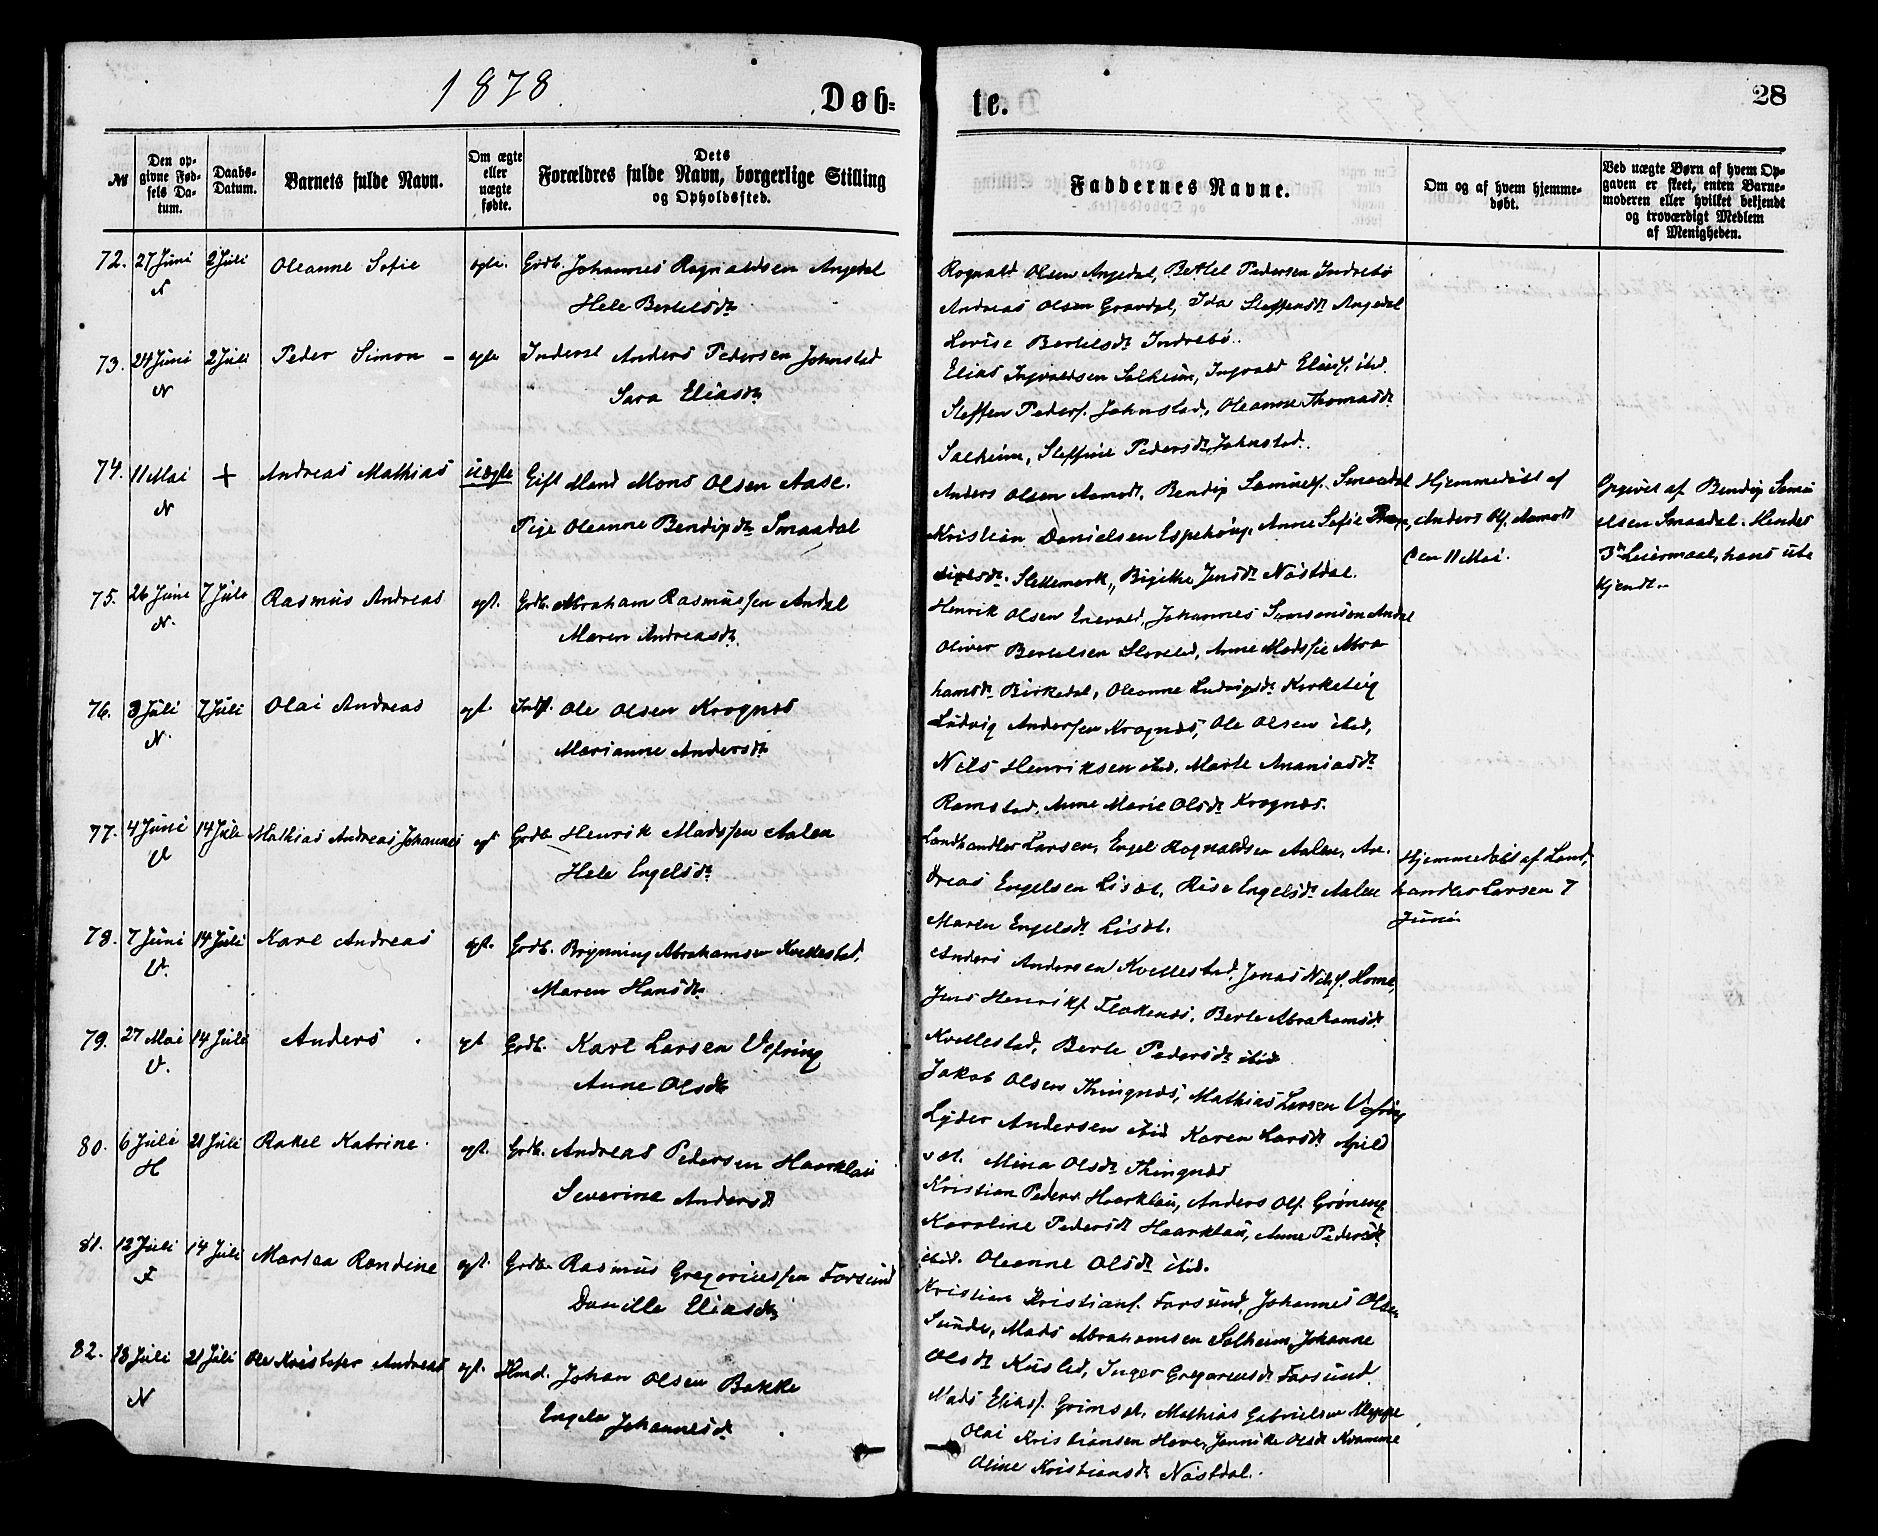 1878
Døb-
te.
28
№
Den op-
givne Fød-
sels Da-
tum.
Daabs-
Datum.
Barnets fulde Navn.
Om ægte
eller
uægte
fødte.
Dets
Forældres fulde Navn, borgerlige Stilling
og Opholdssted.
Faddernes Navne.
Om og af hvem hjemme-
døbt.
Ved uægte Børn af hvem Op-
gaven er skeet, enten Barne-
moderen eller hvilket bekjendt
og troværdigt Medlem
af Menigheden.
72. 27 Juni 2 Juli Oleanne Sofie Grdb. Johannes Rognaldsen Angedal
N Hele Bertelsdtr
Rognald Olsen Angedal, Bertel Pedersen Indrebø
Andreas Olsen Gravdal, Ida Steffensdtr Angedal
Lovise Bertelsdtr Indrebø.
73. 24 Juni 2 Juli Peder Simon Inderst Anders Pedersen Johnstad
N Sara Eliasdtr
Elias Ingvaldsen Solheim, Ingvald Eliasf. ibid.
Steffen Pedersf. Johnstad, Oleanne Thomasdtr
Solheim, Steffine Pedersdtr Johnstad.
74. 11 Mai + Andreas Mathias uægte Gift Mand Mons Olsen Aase.
N Pige Oleanne Bendixdtr Smaadal
Anders Olsen Aamodt, Bendix Samuelsf. Smaadal
Kristian Danielsen Espehøug, Anne Sofie
Slettemark, Jensdtr Nåstdal.
Hjemmedøbt af
Anders Ols. Aamodt
den 11 Mai.
Opgivet af Bendix Samu
elsen Smaadal. Hendes
3die Leiermaal, hans ube
kjendt.
75. 26 Juni 7 Juli Rasmus Andreas egt. Grdb. Abraham Rasmussen Andal
N. Maren Andreasdtr.
Henrik Olsen Johannes Simonsen Andal
Oliver Bertelsen Anne Madsfie Abra
hamsdtr Birkedal, Oleanne Ludvigsdtr Kirketeig
76. 3 Juli 7 Juli Olai Andreas egt. Indst. Ole Olsen Krognæs
N. Marianne Andersdtr
Ludvig Anderssen Krognæs, Ole Olsen ibid,
Nils Henriksen ibid. Marte Ananiasdtr
Ramstad, Anne Marie Olsdtr Krognæs.
77. 4 Juni 14 Juli Mathias Andreas Johannes egt Grdb. Henrik Madssen Aalen
V Hele Engelsdtr
Landhandler Larsen, Engel Rognaldsen Aalen, An-
dreas Engelsen Lisæt, Engelsdtr Aalen
Maren Engelsdtr Lisæt.
Hjemmedøbt af Land,
handler Larsen 7
Juni
78. 7 Juni 14 Juli Karl Andreas egt. Grdb. Brynning Abrahamsen Kvellestad.
V. Maren Hansdtr
Anders Andersen Kvellestad, Jonas Nilsf. Horne,
Jens Henriksf. Flokenæs, Berte Abrahamsdtr
Kvellestad, Berte Pedersdtr ibid
79. 27 Mai 14 Juli Anders egt Grdb. Karl Larsen Vefring
V. Anne Olsdtr
Jakob Olsen Thingnæs, Mathias Larsen Vefring
Lyder Andersen ibid Karen Larsdtr Apild
sæt. Mina Olsdtr Thingnæs
80. 6 Juli 21 Juli Rakel Katrine. egt. Grdb. Andreas Pedersen Haarklau
H Severine Andersdtr
Kristian Peders. Haarklau, Anders Olsf. Grøneng
Karoline Pedersdtr Haarklau, Anne Pedersdtr
ibid. Oleanne Olsdtr ibid.
81. 12 Juli 14 Juli Martea Randine egt. Grdb. Rasmus Gregoriussen Forsund
F Danille Eliasdtr
Kristian Kristiansf. Forsund, Johannes Olsen
Sunde, Mads Abrahamsen Solheim, Johanne
Olsdtr Inger Gregoriusdtr Forsund
82. 13 Juli 21 Juli Ole Kristofer Andreas egt. Hmd. Johan Olsen Bakke
N Engela Johannesdtr
Mads Eliasf. Grimset, Mathias Gabrielsen Kleppe
Olai Kristiansen Hove, Jannike Olsdtr Kvamme
Oline Kristiansdtr Nåstdal.